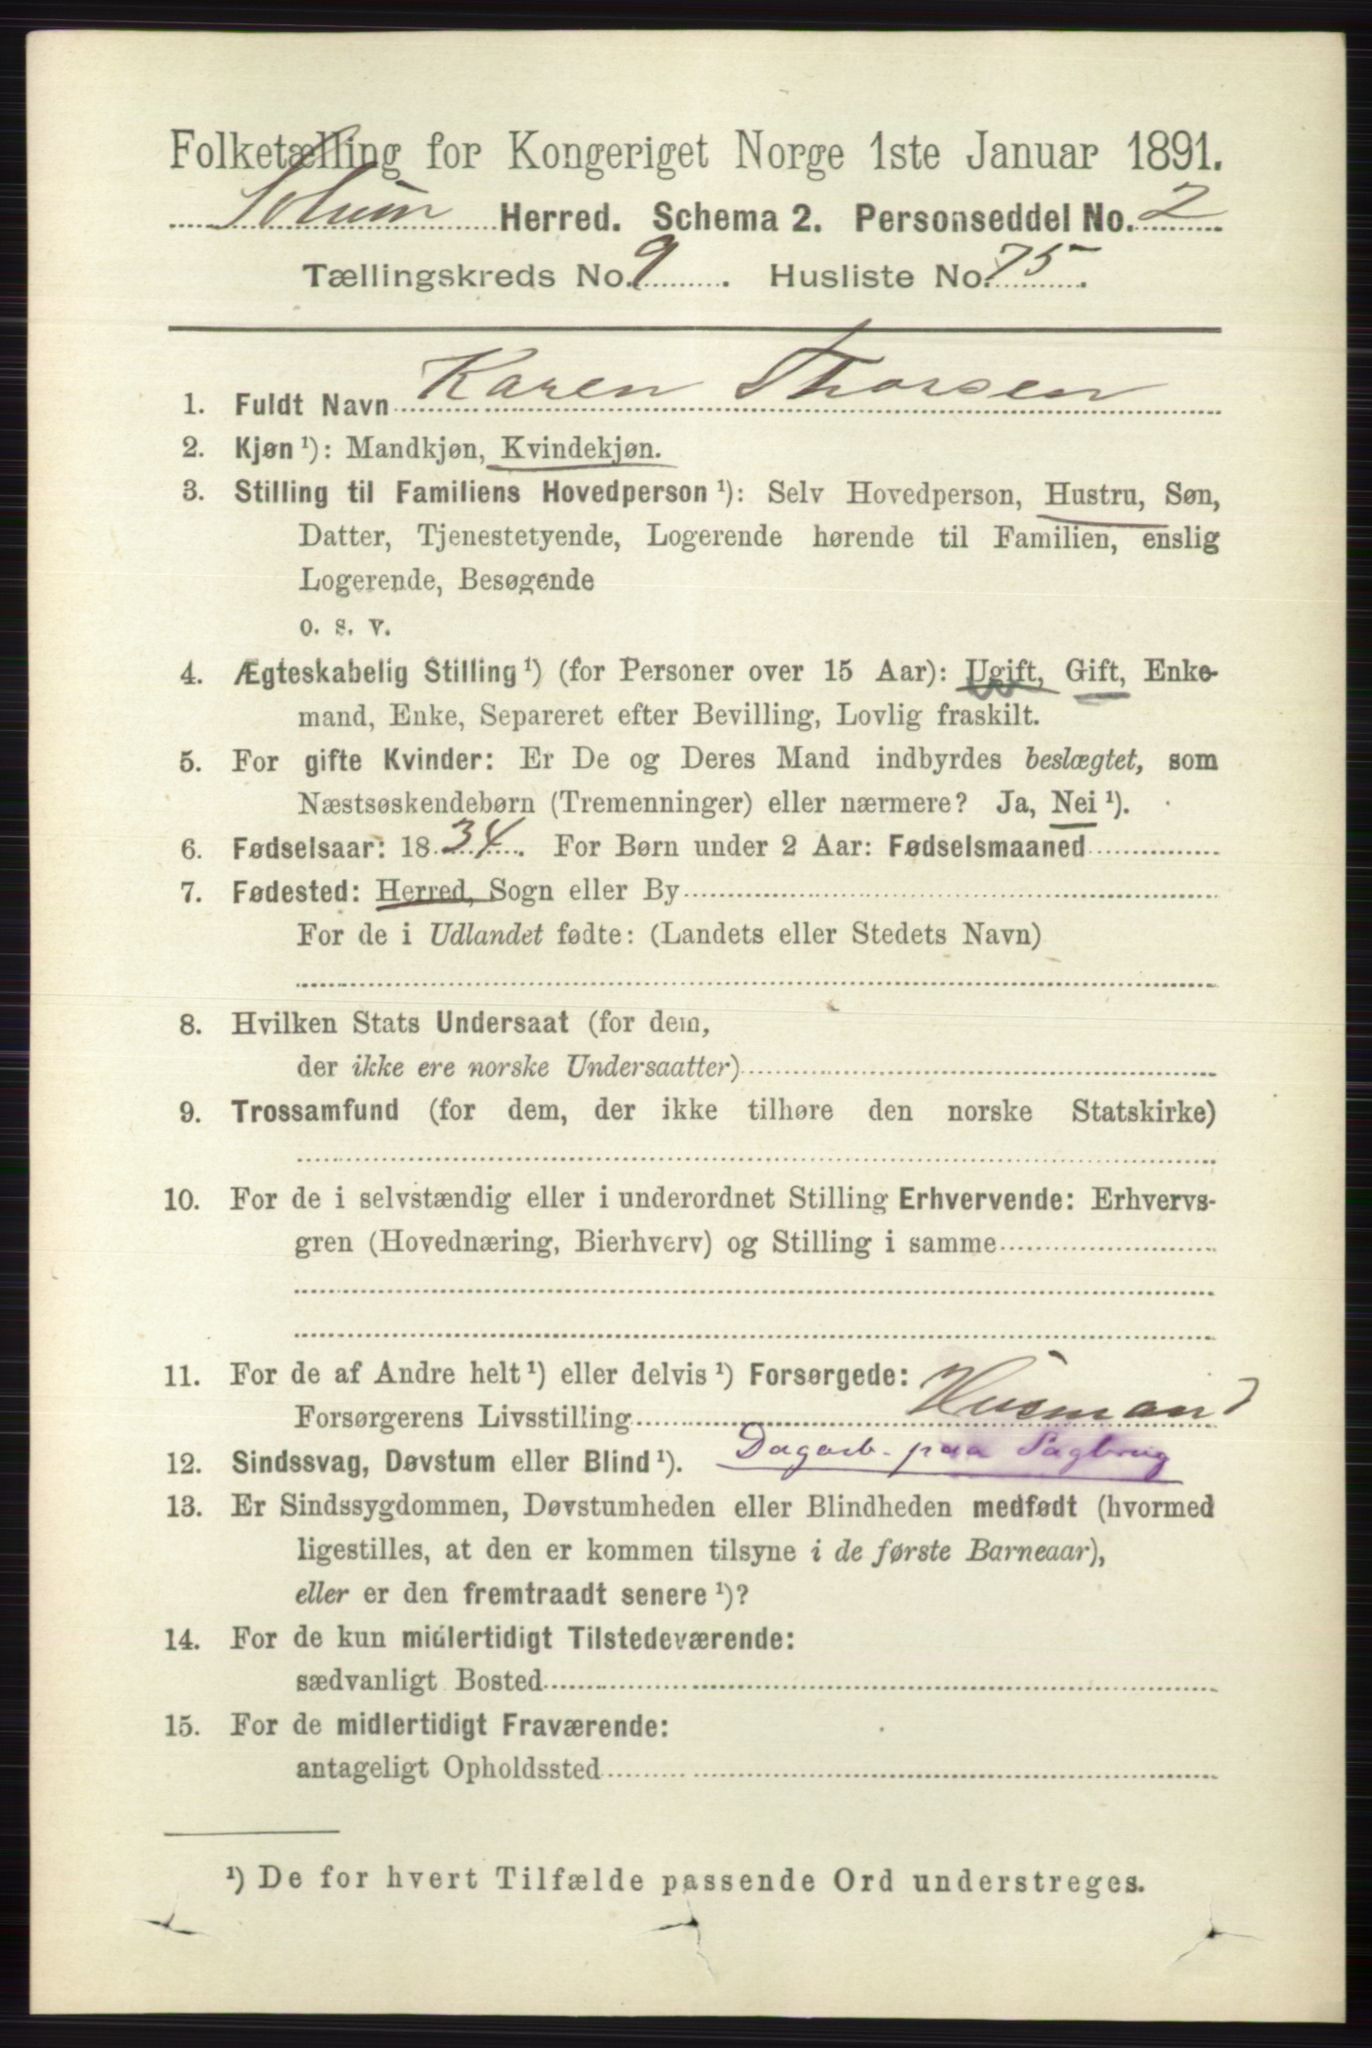 Folketælling for Kongeriget Norge 1ste Januar 1891.
Solum Herred. Schema 2. Personseddel No. 2
Tællingskreds No. 9. Husliste No. 75.
1. Fuldt Navn Karen Thorsen
2. Kjøn ¹): Mandkjøn, Kvindekjøn.
3. Stilling til Familiens Hovedperson ¹): Selv Hovedperson, Hustru, Søn,
Datter, Tjenestetyende, Logerende hørende til Familien, enslig
Logerende, Besøgende
o. s. v.
4. Ægteskabelig Stilling ¹) (for Personer over 15 Aar): Ugift, Gift, Enke-
mand, Enke, Separeret efter Bevilling, Lovlig fraskilt.
5. For gifte Kvinder: Er De og Deres Mand indbyrdes beslægtet, som
Næstsøskendebørn (Tremenninger) eller nærmere? Ja, Nei ¹).
6. Fødselsaar: 1834. For Børn under 2 Aar: Fødselsmaaned
7. Fødested: Herred, Sogn eller By
For de i Udlandet fødte: (Landets eller Stedets Navn)
8. Hvilken Stats Undersaat (for dem,
der ikke ere norske Undersaatter)
9. Trossamfund (for dem, der ikke tilhøre den norske Statskirke)
10. For de i selvstændig eller i underordnet Stilling Erhvervende: Erhvervs-
gren (Hovednæring, Bierhverv) og Stilling i samme
11. For de af Andre helt ¹) eller delvis ¹) Forsørgede:
Forsørgerens Livsstilling Husmand
12. Sindssvag, Døvstum eller Blind ¹). Dagarb. paa Sagbrug
13. Er Sindssygdommen, Døvstumheden eller Blindheden medfødt (hvormed
ligestilles, at den er kommen tilsyne i de første Barneaar),
eller er den fremtraadt senere ¹)?
14. For de kun midlertidigt Tilstedeværende:
sædvanligt Bosted
15. For de midlertidigt Fraværende:
antageligt Opholdssted
¹) De for hvert Tilfælde passende Ord understreges.